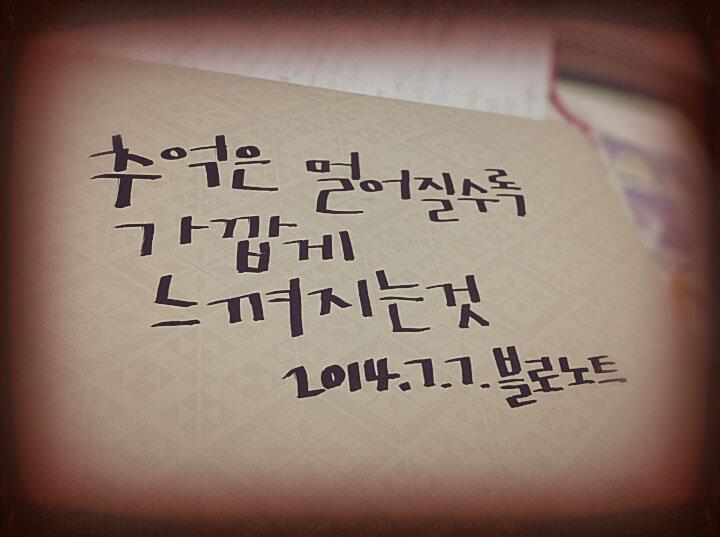 추억은 멀어질수록
가깝게
느껴지는것
2014.7.7.블로노트